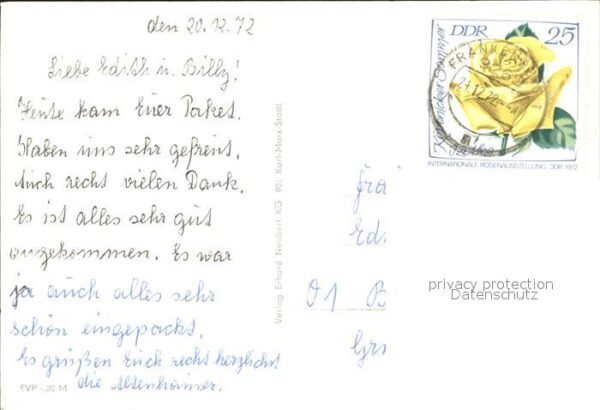 den 20.12.72
Liebe Edith u. Billy!
Heute kam Euer Paket.
Haben uns sehr gefreut,
Auch recht vielen Dank.
Es ist alles sehr gut
angekommen. Es war
ja auch alles sehr
schön eingepackt.
Es grüßen Euch recht herzlichst
die Altenhainer.
EVP -,20 M
Verlag Erhard Neubert KG 901 Karl-Marx-Stadt
DDR 25
INTERNATIONALE ROSENAUSSTELLUNG DDR 1972
FRANKEN
21.12.72
Fra
Ed
91 B
Gr
privacy protection
Datenschutz